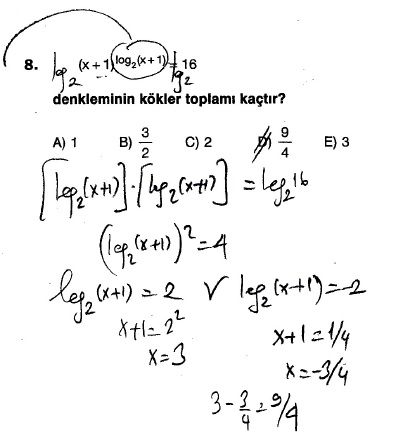 8. log₂ (x+1)^log₂(x+1) = log₂ 16
denkleminin kökler toplamı kaçtır?
A) 1 B) 3/2 C) 2 D) 9/4 E) 3
[log₂(x+1)]·[log₂(x+1)] = log₂16
(log₂(x+1))² = 4
log₂(x+1) = 2 V log₂(x+1) = -2
x+1 = 2² x+1 = 1/4
x = 3 x = -3/4
3 - 3/4 = 9/4